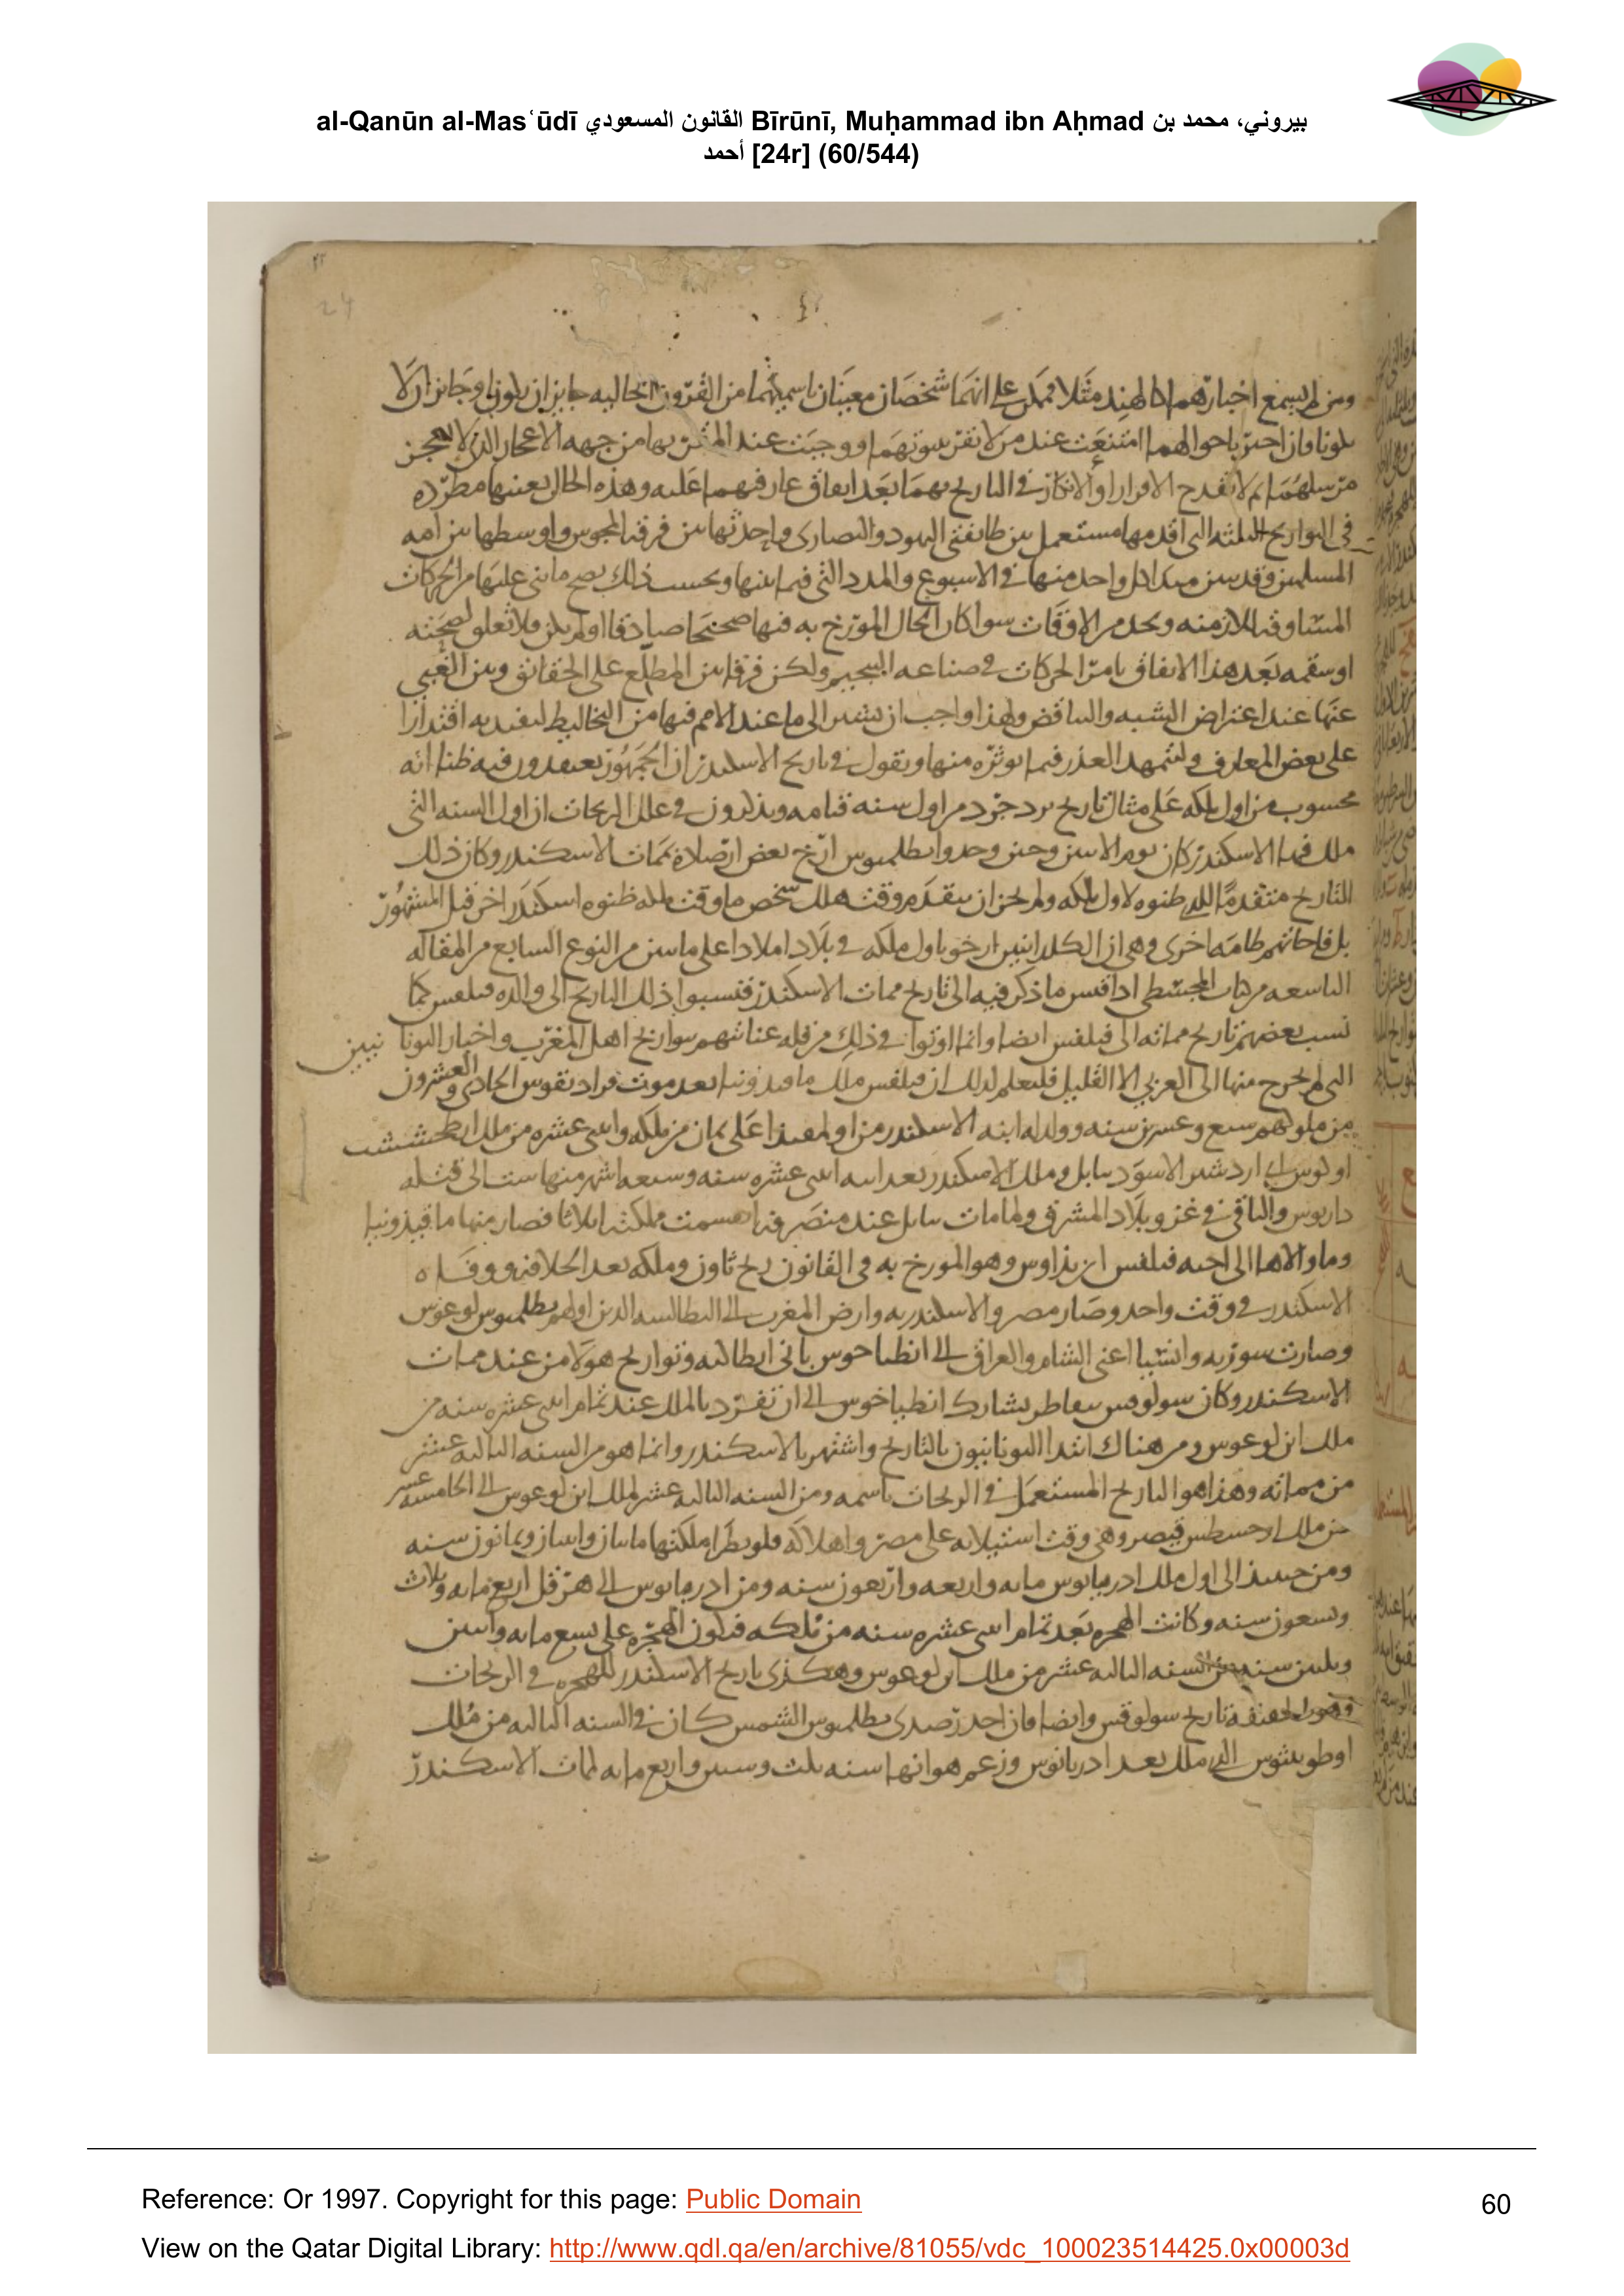 al-Qanūn al-Masʿūdī القانون المسعودي Bīrūnī, Muḥammad ibn Aḥmad بيروني، محمد بن
أحمد [24r] (60/544)
24
ومن لم يسمع اخبارهم كالهند مثلا على انهما شخصان معينان باسميهما من القرون الخاليه جايز ان يكونا وجايز ان لا
يكونا فان اخبر باحوالهما امتنعت عند من لا نقر بنبوتهما ووجبت عند المقر بها من جهه الاعجاز الذى لا يعجز
مرسلهما ثم لا يقدح الاقرار او الانكار فى التاريخ بهما بعد اتفاق عارفيهما عليه وهذه الحال بعينها مطرده
فى التواريخ الثلثه التى اقدمها مستعمل بين طايفتى اليهود والنصارى واحدثها بين فرقه المجوس واوسطها بين امه
المسلمين وقد بين مبدا كل واحد منها فى الاسبوع والمدد التى فيما بينها وبحسب ذلك يصح ما بنى عليها من الحركات
المتساوقه للازمنه وبحد من الاوقات سوا كان الحال المورخ به فيها صحيحا صادقا او لم يكن ولا تعلق لصحته
او سقمه بعد هذا الاتفاق بامر الحركات فى صناعه التنجيم ولكن فرقا بين المطلع على الحقائق وبين الغبى
عنها عند اعتراض الشبه والتناقض ولهذا واجب ان نشير الى ما عند الامم فيها من التخاليط ليفيد به اقتدارا
على بعض المعارف ولتمهد العذر فيما نوثره منها ونقول فى تاريخ الاسكندر ان الجمهور يعتقدون فيه ظنا انه
محسوب من اول ملكه على مثال تاريخ يزدجرد من اول سنه قيامه ويذكرون فى علل الزيجات ان اول السنه التى
ملك فيها الاسكندر كان يوم الاثنين وحين وجدوا بطلميوس ارخ بعض ارصاده بممات الاسكندر وكان ذلك
التاريخ متقدما للذى ظنوه لاول ملكه ولم يجز ان يتقدم وقت هلك شخص ما وقت ملكه ظنوه اسكندر اخر قبل المشهور
بل فاجاتهم طامه اخرى وهى ان الكلدانيين ارخوا باول ملكه فى بلاد املادا على ما بين من النوع السابع من المقاله
التاسعه من كتاب المجسطى اذا قيس ما ذكر فيه الى تاريخ ممات الاسكندر فنسبوا ذلك التاريخ الى والده فيلفس كما
نسب بعضهم تاريخ مماته الى فيلفس ايضا وانما اوتوا فى ذلك من قله عنايتهم بتواريخ اهل المغرب واخبار اليونانيين
التى لم يخرج منها الى العربى الا القليل فليعلم لذلك ان فيلفس ملك ماقيدونيا بعد موت فرادنقوس الحادى والعشرون
من ملوكهم سبع وعشرين سنه وولد له ابنه الاسكندر من اولمفيدا على ثمان من ملكه واثنى عشره من ملك ارطخششت
اوكوس اى اردشير الاسود ببابل وملك الاسكندر بعد ابيه اثنى عشره سنه وسبعه اشهر منها ست الى قتله
داريوس والباقى فى غزو بلاد المشرق ولما مات ببابل عند منصرفه انقسمت مملكته اثلاثا فصار منها ماقيذونيا
وما والاها الى اخيه فيلفس ارنذاوس وهو المورخ به فى القانون زيج ثاون وملكه بعد الخلافه ووفاه
الاسكندر فى وقت واحد وصار مصر والاسكندريه وارض المغرب الى البطالسه الذين اولهم بطلميوس لوغوس
وصارت سوريه واسيا اعنى الشام والعراق الى انطياخوس بانى انطاكيه وتواريخ هولا من عند ممات
الاسكندر وكان سولوقس نيقاطر يشارك انطياخوس الى ان تفرد بالملك عند تمام اثنى عشره سنه من
ملك ابن لوغوس ومن هناك ابتدا اليونانيون بالتاريخ واشتهر بالاسكندر وانما هو من السنه الثالثه عشر
من مماته وهذا هو التاريخ المستعمل فى الزيجات باسمه ومن السنه الثالثه عشر لملك ابن لوغوس الى الخامسه عشر
من ملك اوغسطس قيصر وهى وقت استيلائه على مصر واهلاكه قلوبطرا ملكتها مايتان واثنان وثمانون سنه
ومن حينئذ الى اول ملك ادريانوس مايه واربعه واربعون سنه ومن ادريانوس الى هرقل اربع مايه وثلاث
وتسعون سنه وكانت الهجره بعد تمام اثنى عشره سنه من ملكه فيكون الهجره على تسع مايه واثنين
وثلثين سنه من السنه الثالثه عشر من ملك ابن لوغوس وهكذى تاريخ الاسكندر للهجره فى الزيجات
وهو بالحقيقه تاريخ سولوقس وايضا فان احد رصدى بطلميوس الشمس كان فى السنه الثالثه من ملك
اوطونينوس الذى ملك بعد ادريانوس وزعم هو انها سنه ثلث وستين واربع مايه لممات الاسكندر
Reference: Or 1997. Copyright for this page: Public Domain
60
View on the Qatar Digital Library: http://www.qdl.qa/en/archive/81055/vdc_100023514425.0x00003d